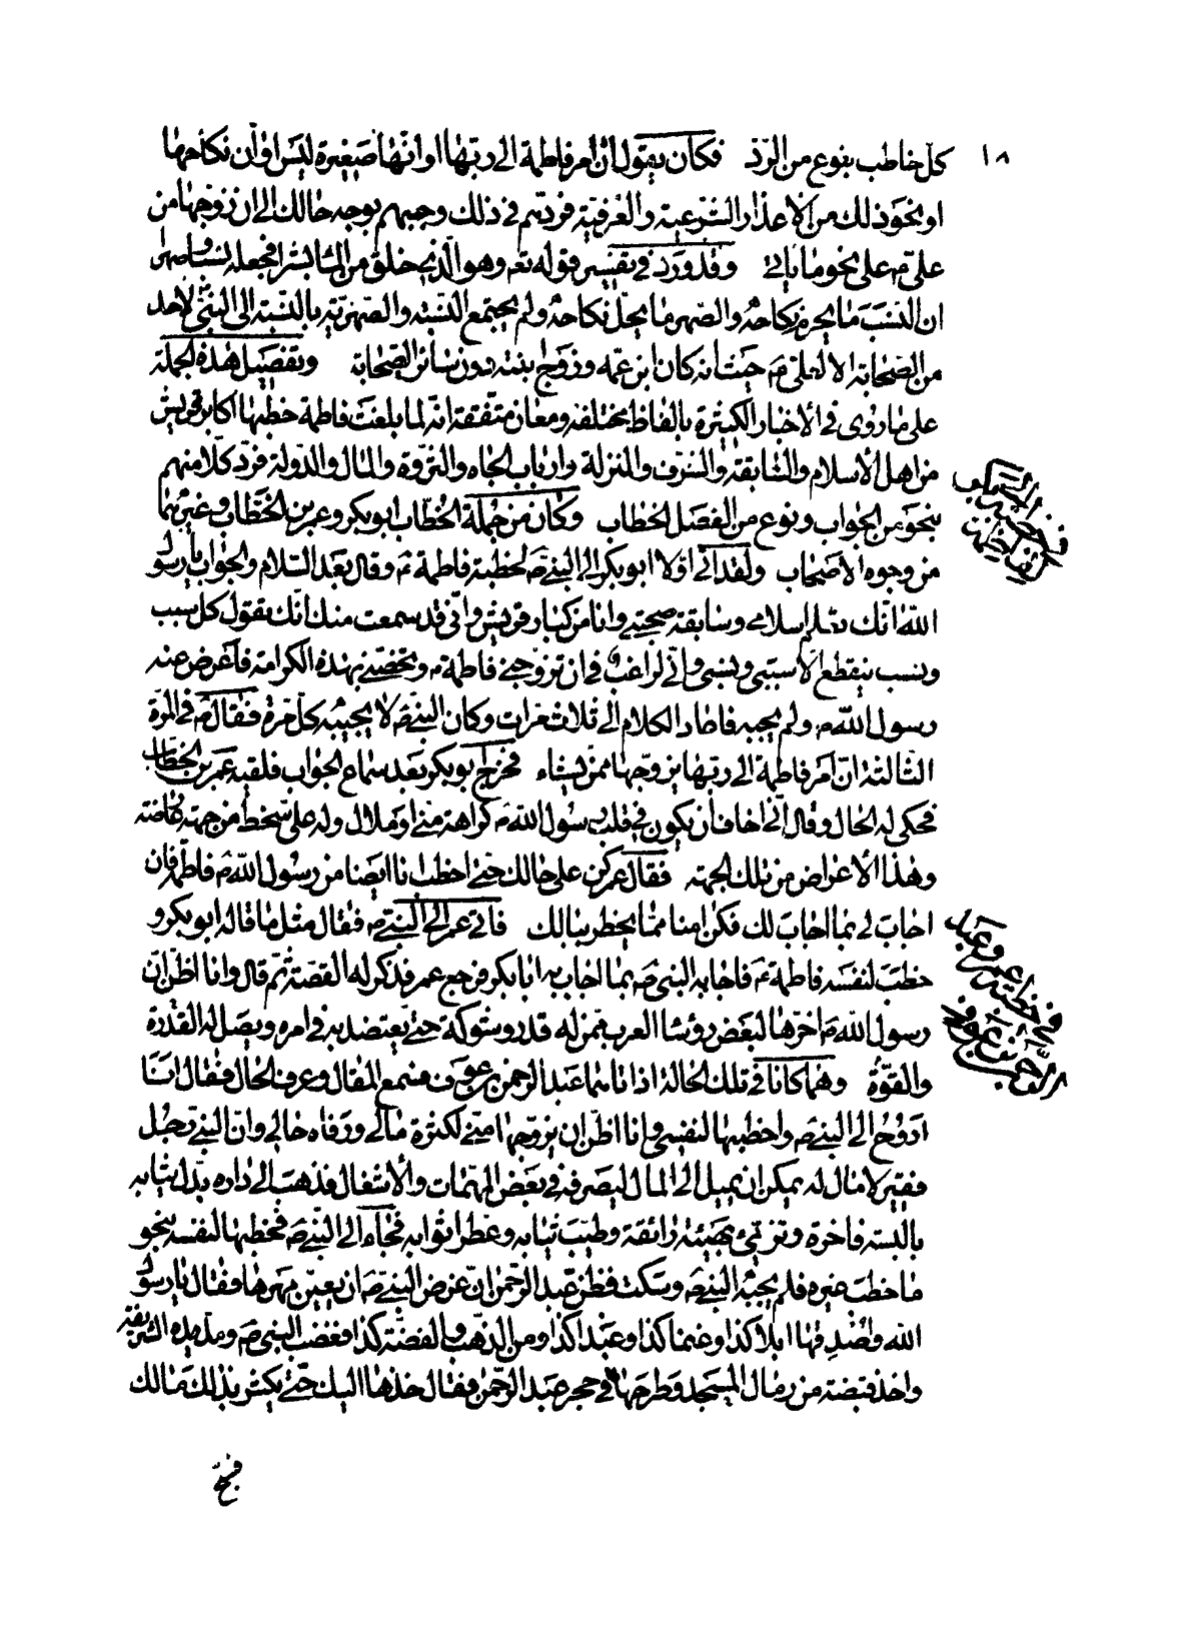 ١٨
كلّ خاطب بنوع من الردّ فكان يقول ان امر فاطمة الى ربّها او انّها صغيرة ليس اوان نكاحها
او نحو ذلك من الأعذار الشرعية والعرفيّة فردّهم في ذلك وجبههم بوجه حالك الى ان زوّجها من
عليّ ع على نحو ما يأتي وقد ورد في تفسير قوله تعم وهو الّذي خلق من الماء بشرا فجعله نسبا وصهرا
ان النسب ما يحرم نكاحه والصهر ما يحلّ نكاحه ولم يجتمع النسبة والصهريّة بالنسبة الى النبيّ لأحد
من الصّحابة الا لعليّ ع حيث انه كان ابن عمّه وزوج ابنته دون سائر الصّحابة وتفصيل هذه الجملة
على ما روى في الأخبار الكثيرة بالفاظ مختلفة ومعان متّفقة انّه لما بلغت فاطمة خطبها اكابر قريش
من اهل الاسلام والسّابقة والشرف والمنزلة وارباب الجاه والثروة والمال والدولة فردّ كلّا منهم
بنحو من الجواب ونوع من الفصل الخطاب وكان من جملة الخطّاب ابو بكر وعمر بن الخطّاب وغيرهما
من وجوه الأصحاب ولقد اتى اوّلا ابو بكر الى النبيّ ص لخطبة فاطمة ع وقال بعد السّلام والجواب يا رسول
اللّه انّك تعلم اسلامي وسابقة صحبتي وانا من كبار قريش وانّي قد سمعت منك انّك تقول كلّ سبب
ونسب ينقطع الا سببي ونسبي وانّي لراغب في ان تزوّجني فاطمة ع وتخصّني بهذه الكرامة فأعرض عنه
رسول اللّه ص ولم يجبه فاعاد الكلام الى ثلاث مرات وكان النبيّ ص لا يجيبه كلّ مرّة فقال ص في المرّة
الثّالثة انّ امر فاطمة الى ربّها يزوّجها ممّن يشاء فخرج ابو بكر بعد سماع الجواب فلقيه عمر بن الخطّاب
فحكى له الحال وقال انّي اخاف ان يكون في قلب رسول اللّه ص كراهة منّي او ملال وله عليّ سخط من جهة خاصّة
وهذا الأعراض من تلك الجهة فقال عمر كن على حالك حتّى اخطب انا ايضا من رسول اللّه ص فاطمة فان
اجاب لي بما اجاب لك فكن امنا ممّا يخطر ببالك فاتى عمر الى النبيّ ص فقال مثل ما قاله ابو بكر و
خطب لنفسه فاطمة ع فاجابه النبي ص بما اجاب به ابا بكر فرجع عمر فذكر له القصّة ثمّ قال وانا اظنّ انّ
رسول اللّه ص اخّرها لبعض رؤسا العرب ممّن له قدر وشوكة حتّى يعتضد به في امره ويصل له القدرة
والقوّة وهما كانا في تلك الحالة اذ اتاهما عبد الرّحمن بن عوف فسمع المقال وعرف الحال فقال انا
اروح الى النبيّ ص واخطبها لنفسي وانا اظنّ ان يزوّجها منّي لكثرة مالي ورفاه حالي وانّ النبيّ رجل
فقير لا مال له يمكن ان يميل الى المال ليصرفه في بعض المهمّات والأشغال فذهب الى داره بدّل ثيابه
بالبسة فاخرة وتزيّي بهيئة رائقة وطيّب ثيابه وعطر اثوابه فجاء الى النبيّ ص فخطبها لنفسه بنحو
ما خطب غيره فلم يجبه النبيّ ص وسكت فظنّ عبد الرّحمن انّ غرض النبيّ ص ان يعيّن مهرها فقال يا رسول
اللّه واصدقها ابلا كذا وغنما كذا وعبدا كذا ومن الذّهب والفضّة كذا فغضب النبي ص ومدّ يده الشريفة
واخذ قبضة من رمال المسجد وطرحها في حجر عبد الرّحمن فقال خذها اليك حتّى يكثر بذلك مالك